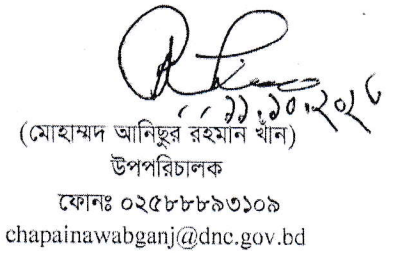 (মোহাম্মদ আনিছুর রহমান খাঁন)
উপপরিচালক
ফোনঃ ০২৫৮৮৮৯৩১০৯
chapainawabganj@dnc.gov.bd